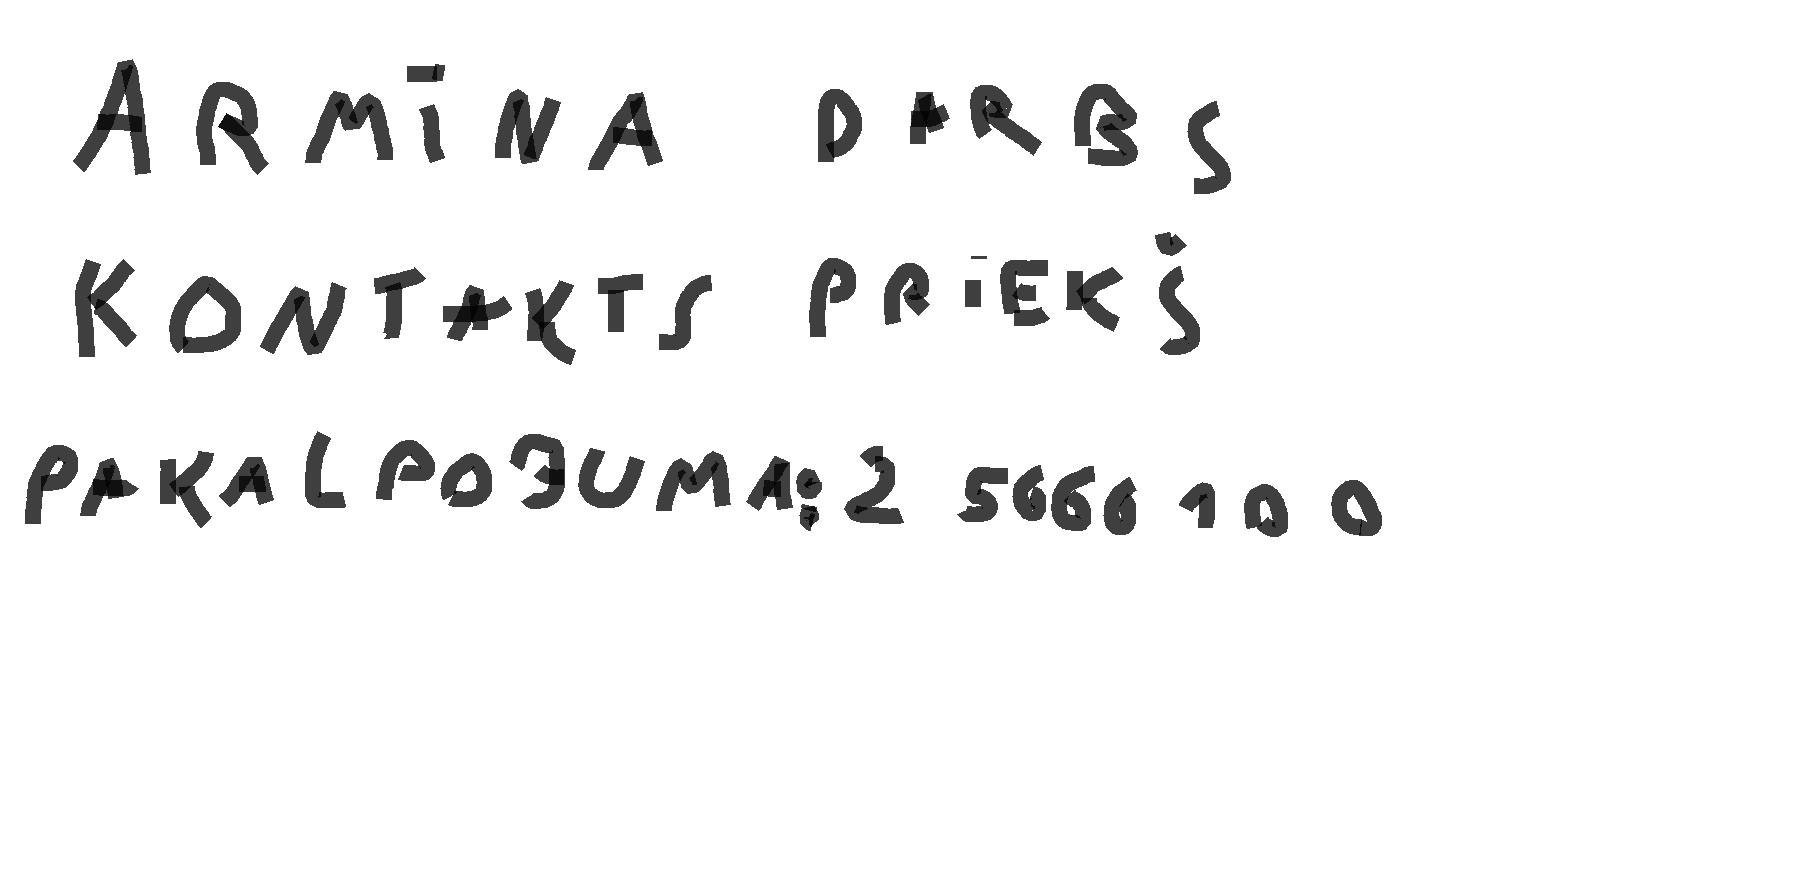 ARMĪNA DARBS
KONTAKTS PRIEKŠ
PAKALPOJUMA: 25666100